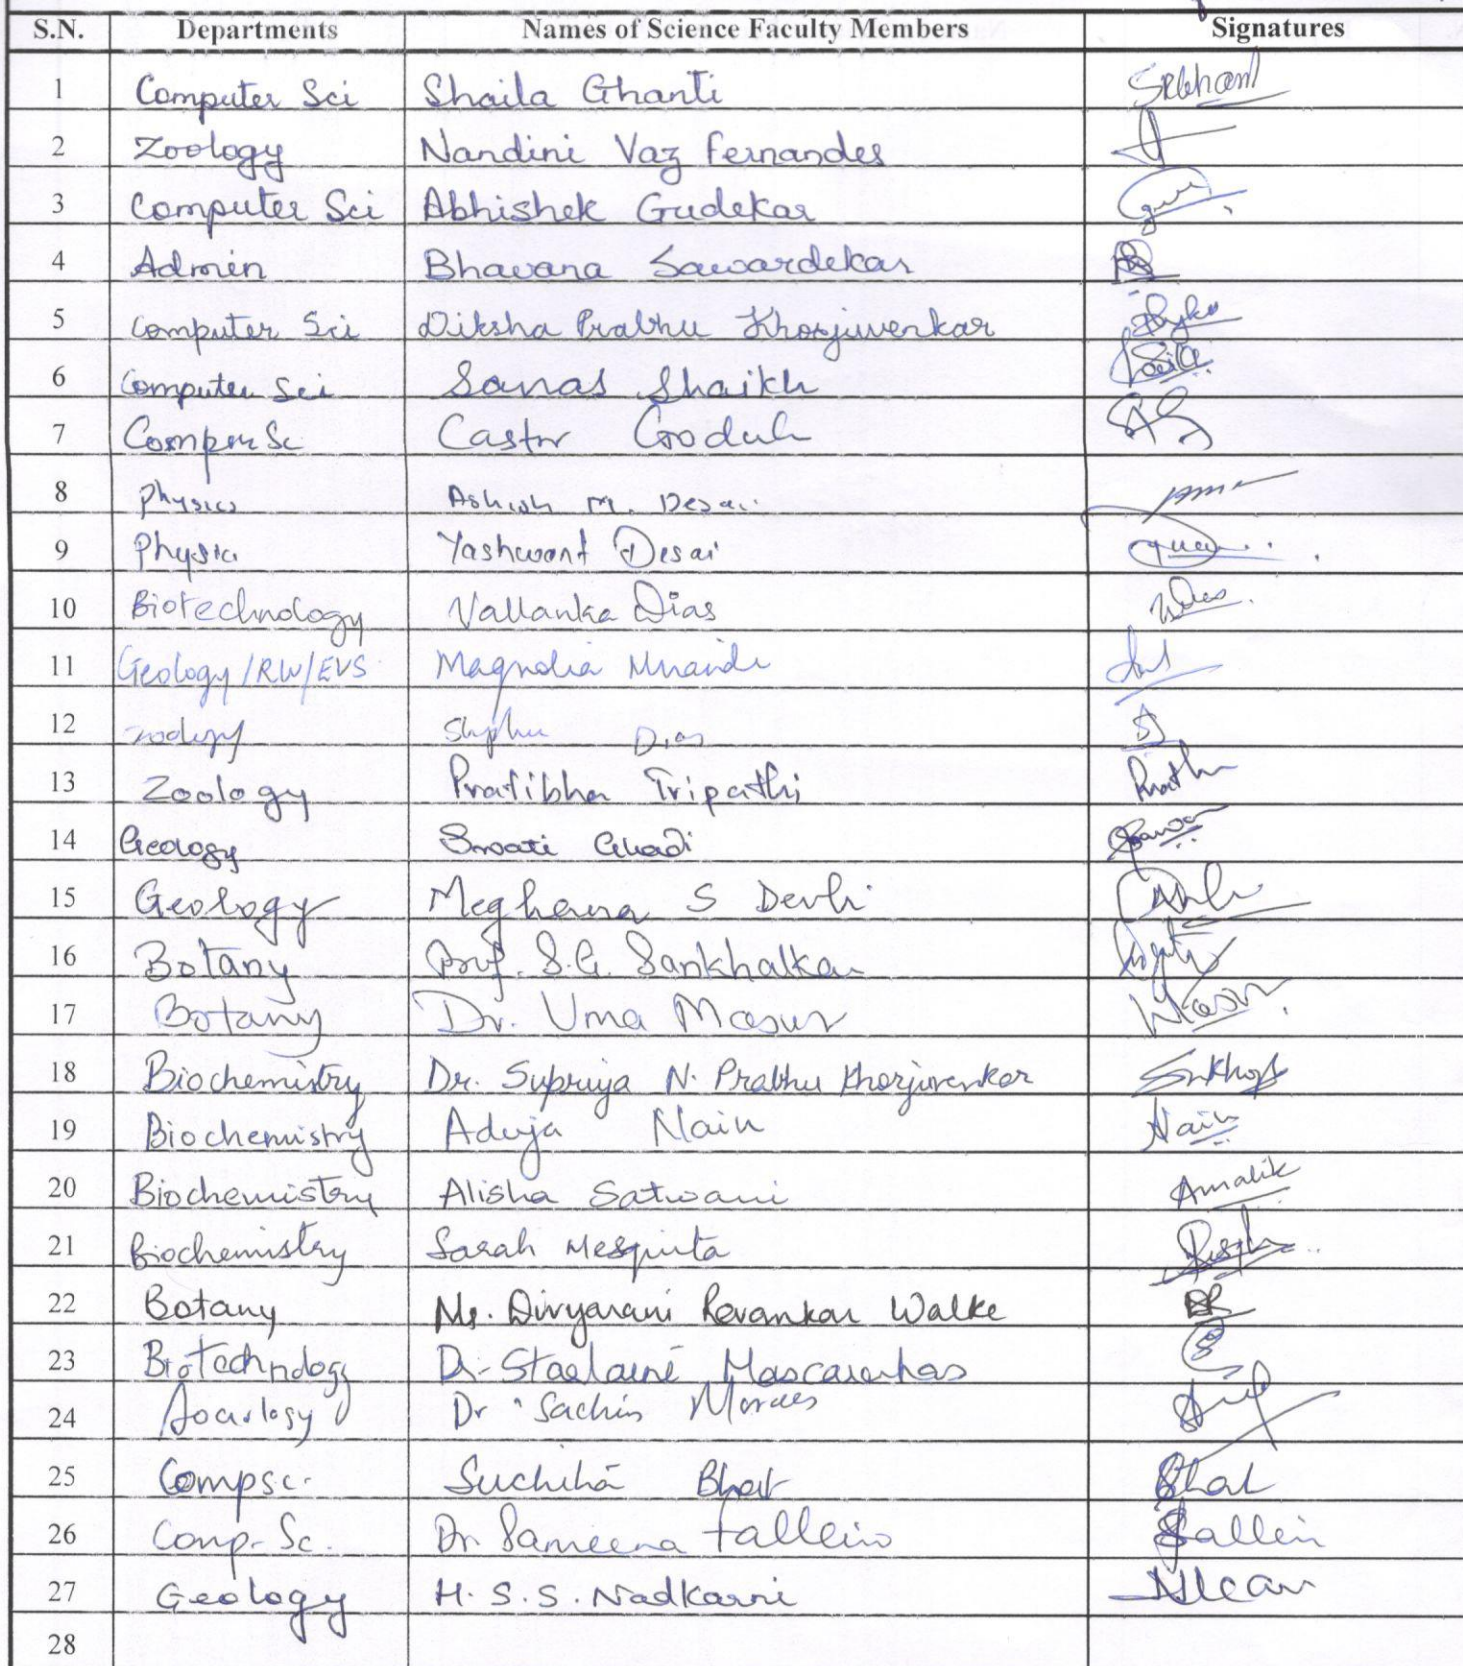 S.N. Departments Names of Science Faculty Members Signatures
1 Computer Sci Shaila Ghanti
2 Zoology Nandini Vaz Fernandes
3 Computer Sci Abhishek Gudekar
4 Admin Bhavana Sawardekar
5 Computer Sci Diksha Prabhu Khorjuvenkar
6 Computer Sci Sanas Shaikh
7 Castor
8 Physics Ashish M. Desai
9 Physics Yashwant Desai
10 Biotechnology Vallanka Dias
11 Geology/RW/EVS Magnolia
12 Zoology Dias
13 Zoology Pratibha Tripathi
14 Geology Swati Ghadi
15 Geology Meghana S Devli
16 Botany Prof. S.G. Sankhalkar
17 Botany Dr. Uma Masur
18 Biochemistry Dr. Supriya N. Prabhu Khorjuvenkar
19 Biochemistry Aduja Naik Naik
20 Biochemistry Alisha Satwani Amalik
21 Biochemistry Sarah Mesquita
22 Botany Ms. Divyarani Revankar Walke
23 Biotechnology Dr. Mascarenhas
24 Dr. Sachin Moraes
25 Compsc. Suchita Bhat Bhat
26 Comp. Sc. Dr Sameena Falleiro
27 Geology H. S. S. Nadkarni
28